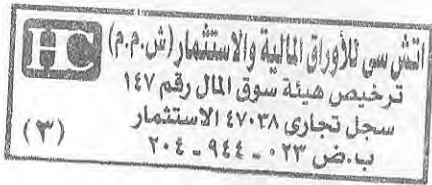 اتش سي للأوراق المالية والاستثمار (ش.م.م) HC
ترخيص هيئة سوق المال رقم ١٤٧
سجل تجارى ٤٧٠٣٨ الاستثمار
ب.ض ٠٢٣ - ٩٤٤ - ٢٠٤
(٣)